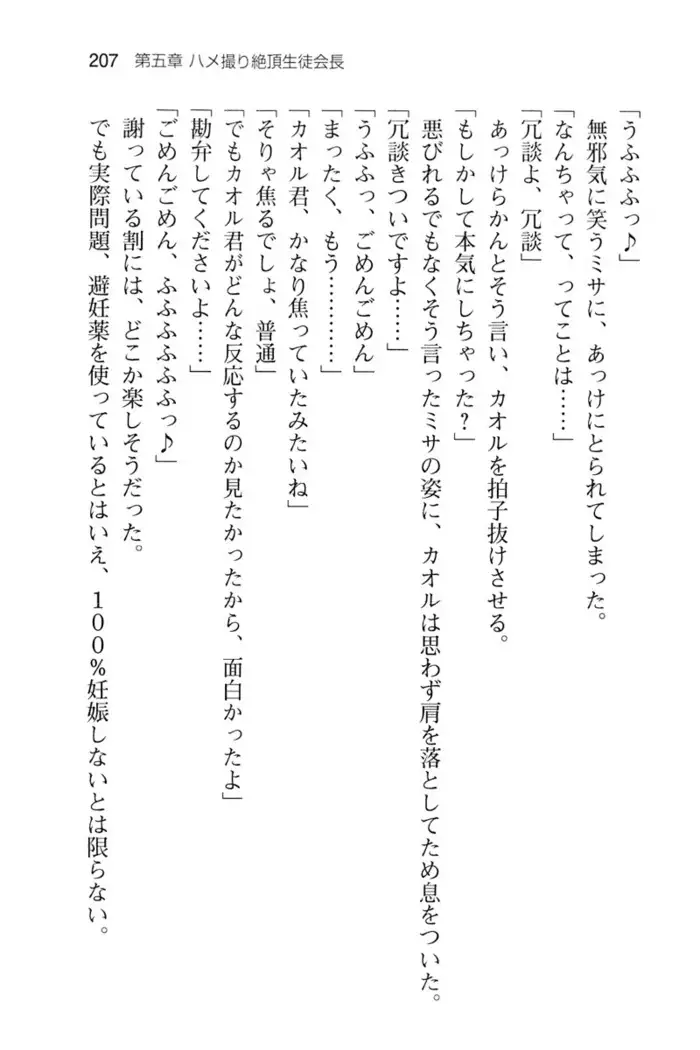 207 第五章 ハメ撮り絶頂生徒会長
「うふふふっ♪」
無邪気に笑うミサに、あっけにとられてしまった。
「なんちゃって、ってことは……」
「冗談よ、冗談」
あっけらかんとそう言い、カオルを拍子抜けさせる。
「もしかして本気にしちゃった?」
悪びれるでもなくそう言ったミサの姿に、カオルは思わず肩を落としてため息をついた。
「冗談きついですよ……」
「うふふっ、ごめんごめん」
「まったく、もう…………」
「カオル君、かなり焦っていたみたいね」
「そりゃ焦るでしょ、普通」
「でもカオル君がどんな反応するのか見たかったから、面白かったよ」
「勘弁してくださいよ……」
「ごめんごめん、ふふふふふふっ♪」
謝っている割には、どこか楽しそうだった。
でも実際問題、避妊薬を使っているとはいえ、100%妊娠しないとは限らない。